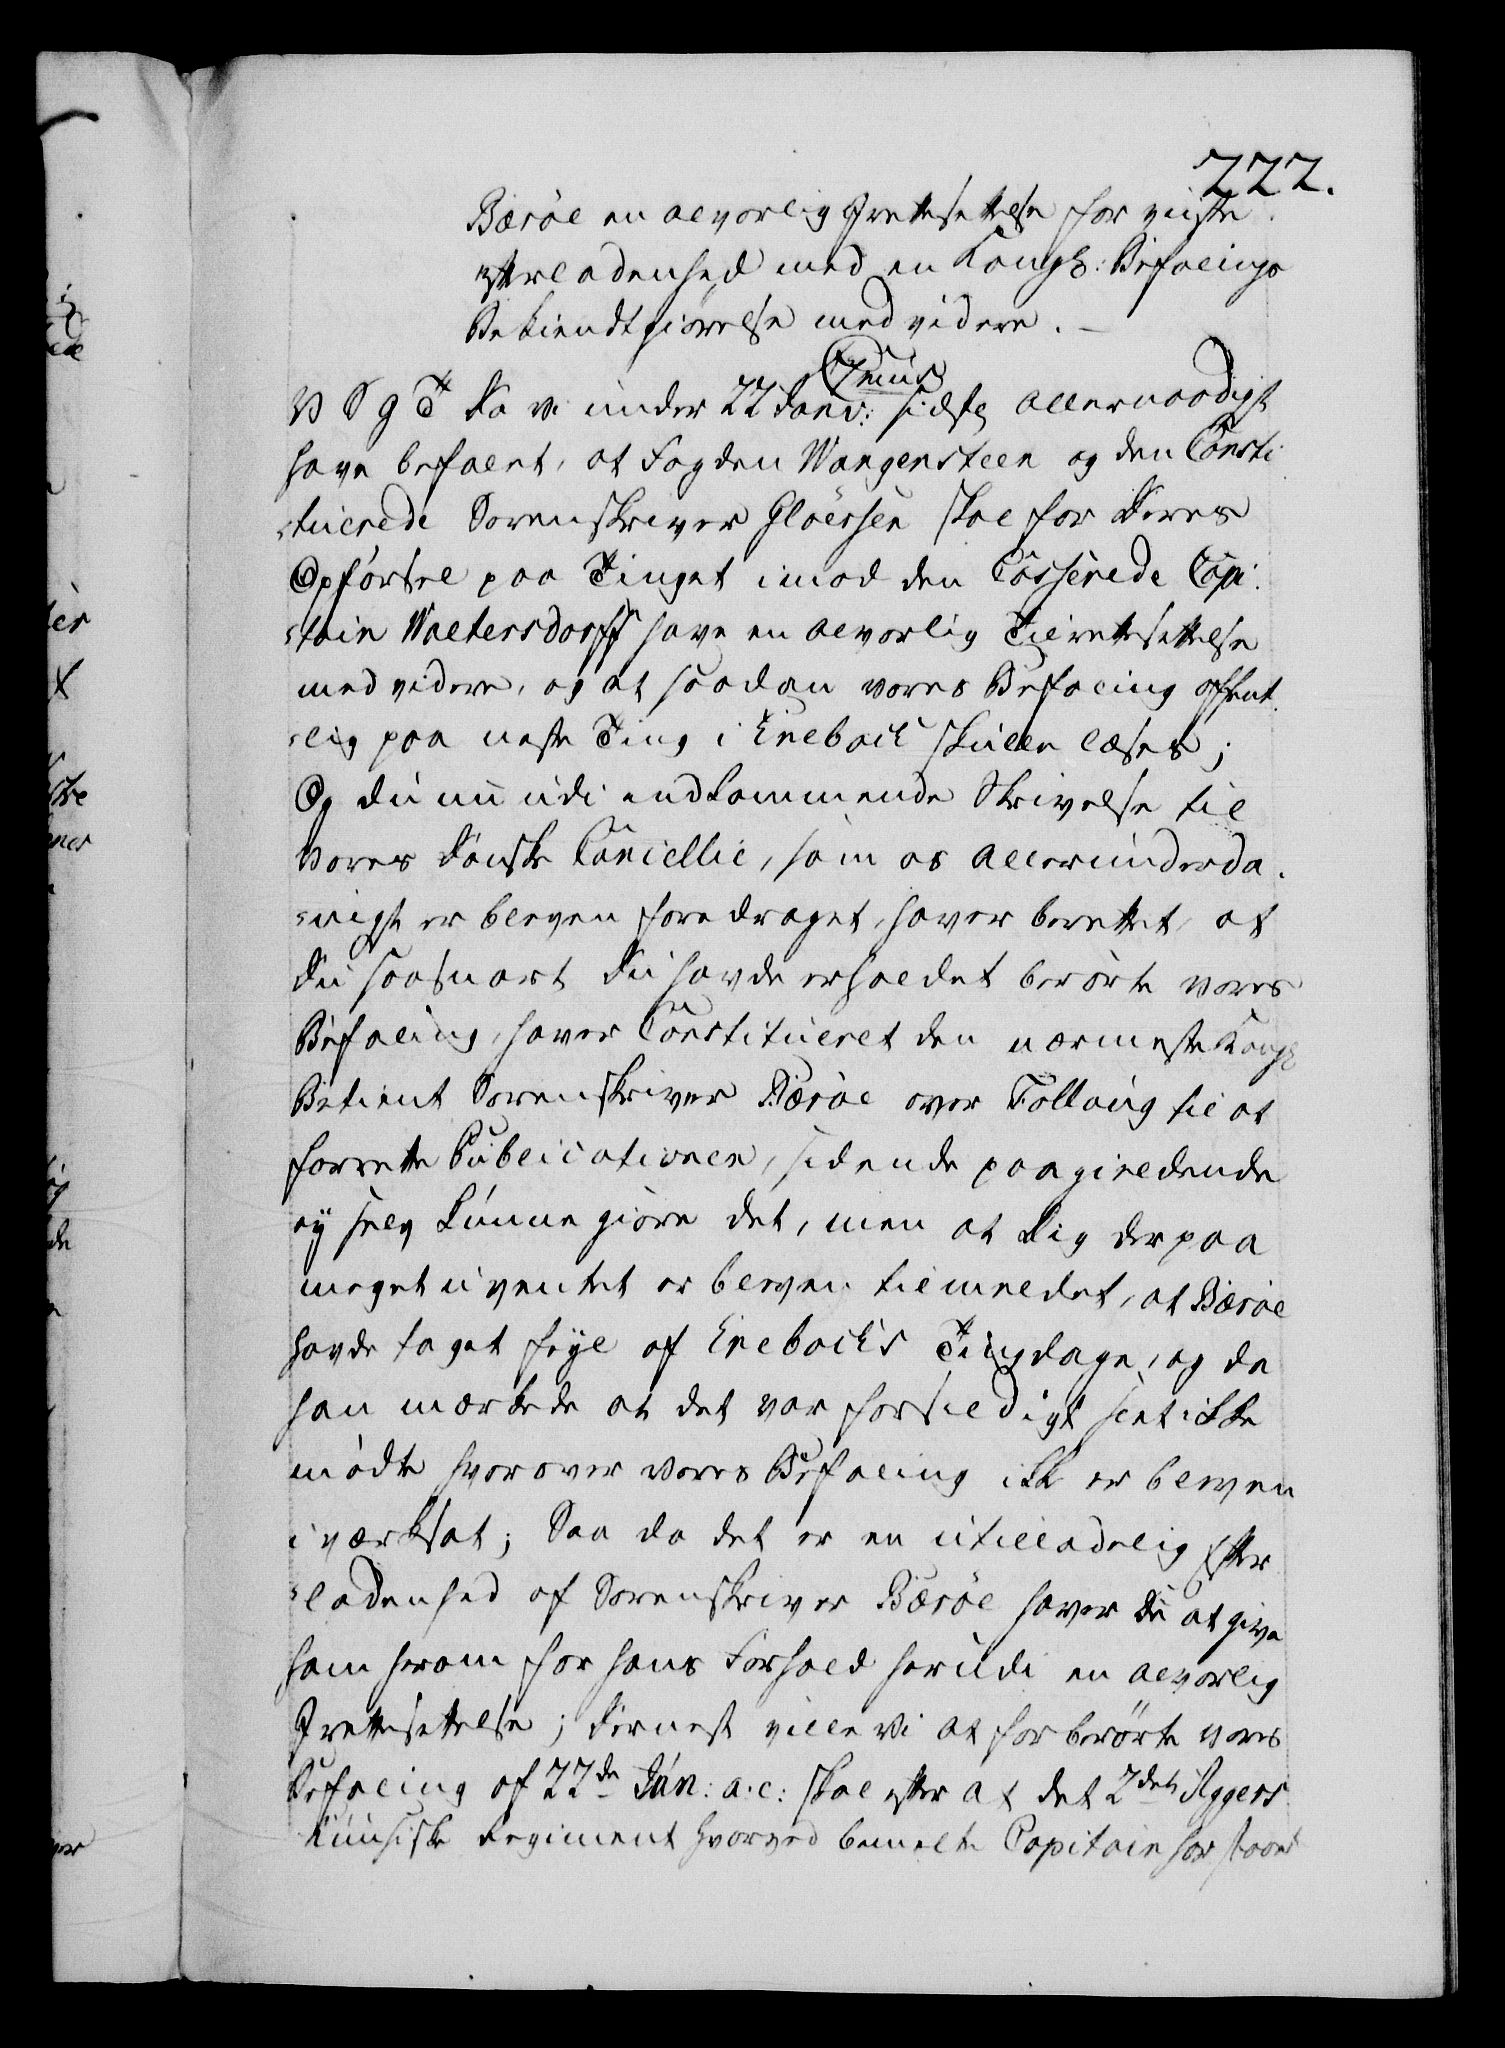 222.
Bærøe en alvorlig Irettesettelse for viiste
efterladenhed med en Kongl: Befalings
Bekiendtgiørelse med videre. –
V S g T Da vi under 22 Janv: sidste allernaadigst
have befalet, at Fogden Wangensteen og den Consti
-tuerede Sorenskriver Gløersen skal for deres
Opførsel paa Tinget imod den Casserede Capi
-tain Waltersdorff have en alvorlig Tilrettesettelse
med videre, og at saadan vores Befaling offent
-lig paa neste Ting i Enebach skulle læses;
Og du nu udi indkommende Skrivelse til
vores danske Cancellie, som os allerunderda
-nigst er bleven foredraget, haver berettet, at
du saasnart du havde erholdet berørte vores
Befaling, haver Constitueret den nærmeste Kongl
Betient Sorenskriver Bærøe over Follaug til at
forrette Publicationen, siden de paagieldende
ey selv kunne giøre det, men at dig derpaa
meget uventet er bleven tilmeldet, at Bærøe
havde taget feyl af Enebachs Tingdage, og da
han mærkede at det var forsildigt sletikke
mødte hvorover vores Befaling ikke er bleven
iværksat; Saa da det er en utilladelig Efter
-ladenhed af Sorenskriver Bærøe haver du at give
ham herom for hans Forhold herudi en alvorlig
Irettesettelse; dernest ville Vi at for berørte vores
Befaling af 22de Jan: a: c: skal efter at det 2det Aggers
huusiske Regiment hvorved bemelte Capitain har staaet